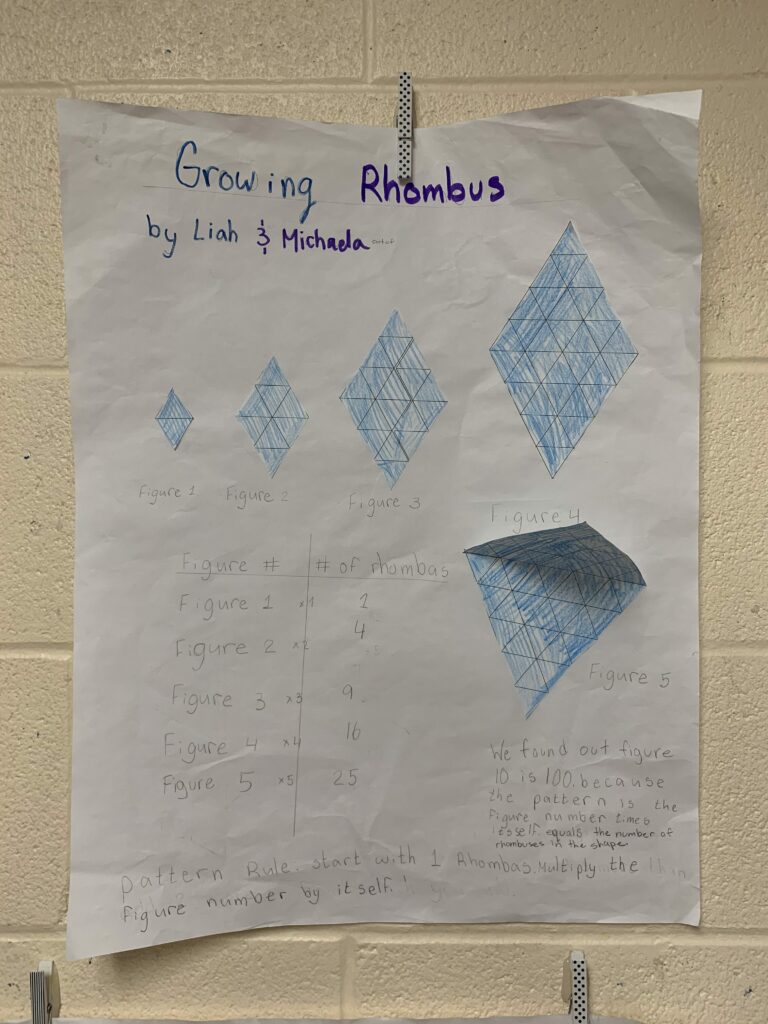 Growing Rhombus
by Liah & Michaela
Figure 1
Figure 2
Figure 3
Figure 4
Figure # # of rhombas
Figure 1 ×1 1
Figure 2 ×2 4
Figure 3 ×3 9
Figure 4 ×4 16
Figure 5 ×5 25
Figure 5
We found out figure
10 is 100. because
the pattern is the
Figure number times
it'sself. equals the number of
rhombuses in the shape
Pattern Rule. start with 1 Rhombas. Multiply the
figure number by itself.